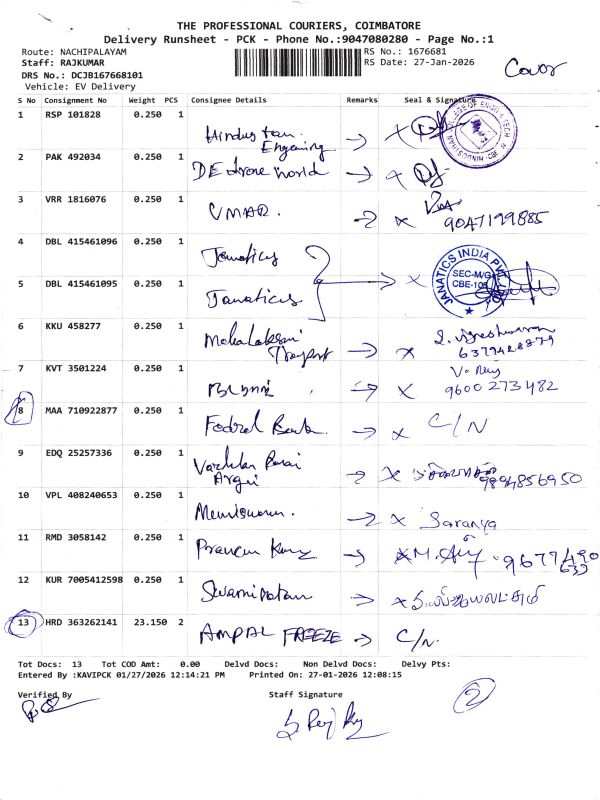 THE PROFESSIONAL COURIERS, COIMBATORE
Delivery Runsheet - PCK - Phone No.:9047080280 - Page No.:1
Route: NACHIPALAYAM RS No.: 1676681
Staff: RAJKUMAR RS Date: 27-Jan-2026
Cover
DRS No.: DCJB167668101
Vehicle: EV Delivery
S No Consignment No Weight PCS Consignee Details Remarks Seal & Signature
1 RSP 101828 0.250 1 Hindustan Engeering
2 PAK 492034 0.250 1 DE drone world
3 VRR 1816076 0.250 1 UMAR. 9047199885
4 DBL 415461096 0.250 1 Janatics
JANATICS INDIA
SEC-M/G
CBE-105
5 DBL 415461095 0.250 1 Janatics
6 KKU 458277 0.250 1 Mahalakshmi Transport
7 KVT 3501224 0.250 1 9600273482
8 MAA 710922877 0.250 1 Fedral Bank. C/N
9 EDQ 25257336 0.250 1 9894856950
10 VPL 408240653 0.250 1 Saranya
11 RMD 3058142 0.250 1
12 KUR 7005412598 0.250 1
13 HRD 363262141 23.150 2 AMPAL FREEZE C/N.
Tot Docs: 13 Tot COD Amt: 0.00 Delvd Docs: Non Delvd Docs: Delvy Pts:
Entered By :KAVIPCK 01/27/2026 12:14:21 PM Printed On: 27-01-2026 12:08:15
Verified By Staff Signature
2